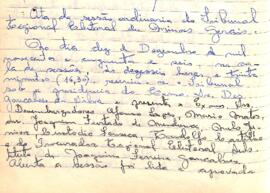 Ata da sessão ordinária do Tribunal
Regional Eleitoral de Minas Gerais.
Ao dia dez de Dezembro de mil
novecentos e cinquenta e seis, na sa-
la de sessões, às dezesseis horas e trinta
minutos (16,30), reuniu-se o Tribunal
sob a presidência do Exmo. Sr. Des.
Gonçalves da Silva
presente os Exmos. Srs.
Desembargadores Afonso Lages, Mário Matos,
drs. Joaquim Furtado de Mendonça,
Custódio
e do Procurador Regional Eleitoral Subs-
tituto dr. Joaquim Ferreira Gonçalves.
Aberta a sessão foi lida aprovada